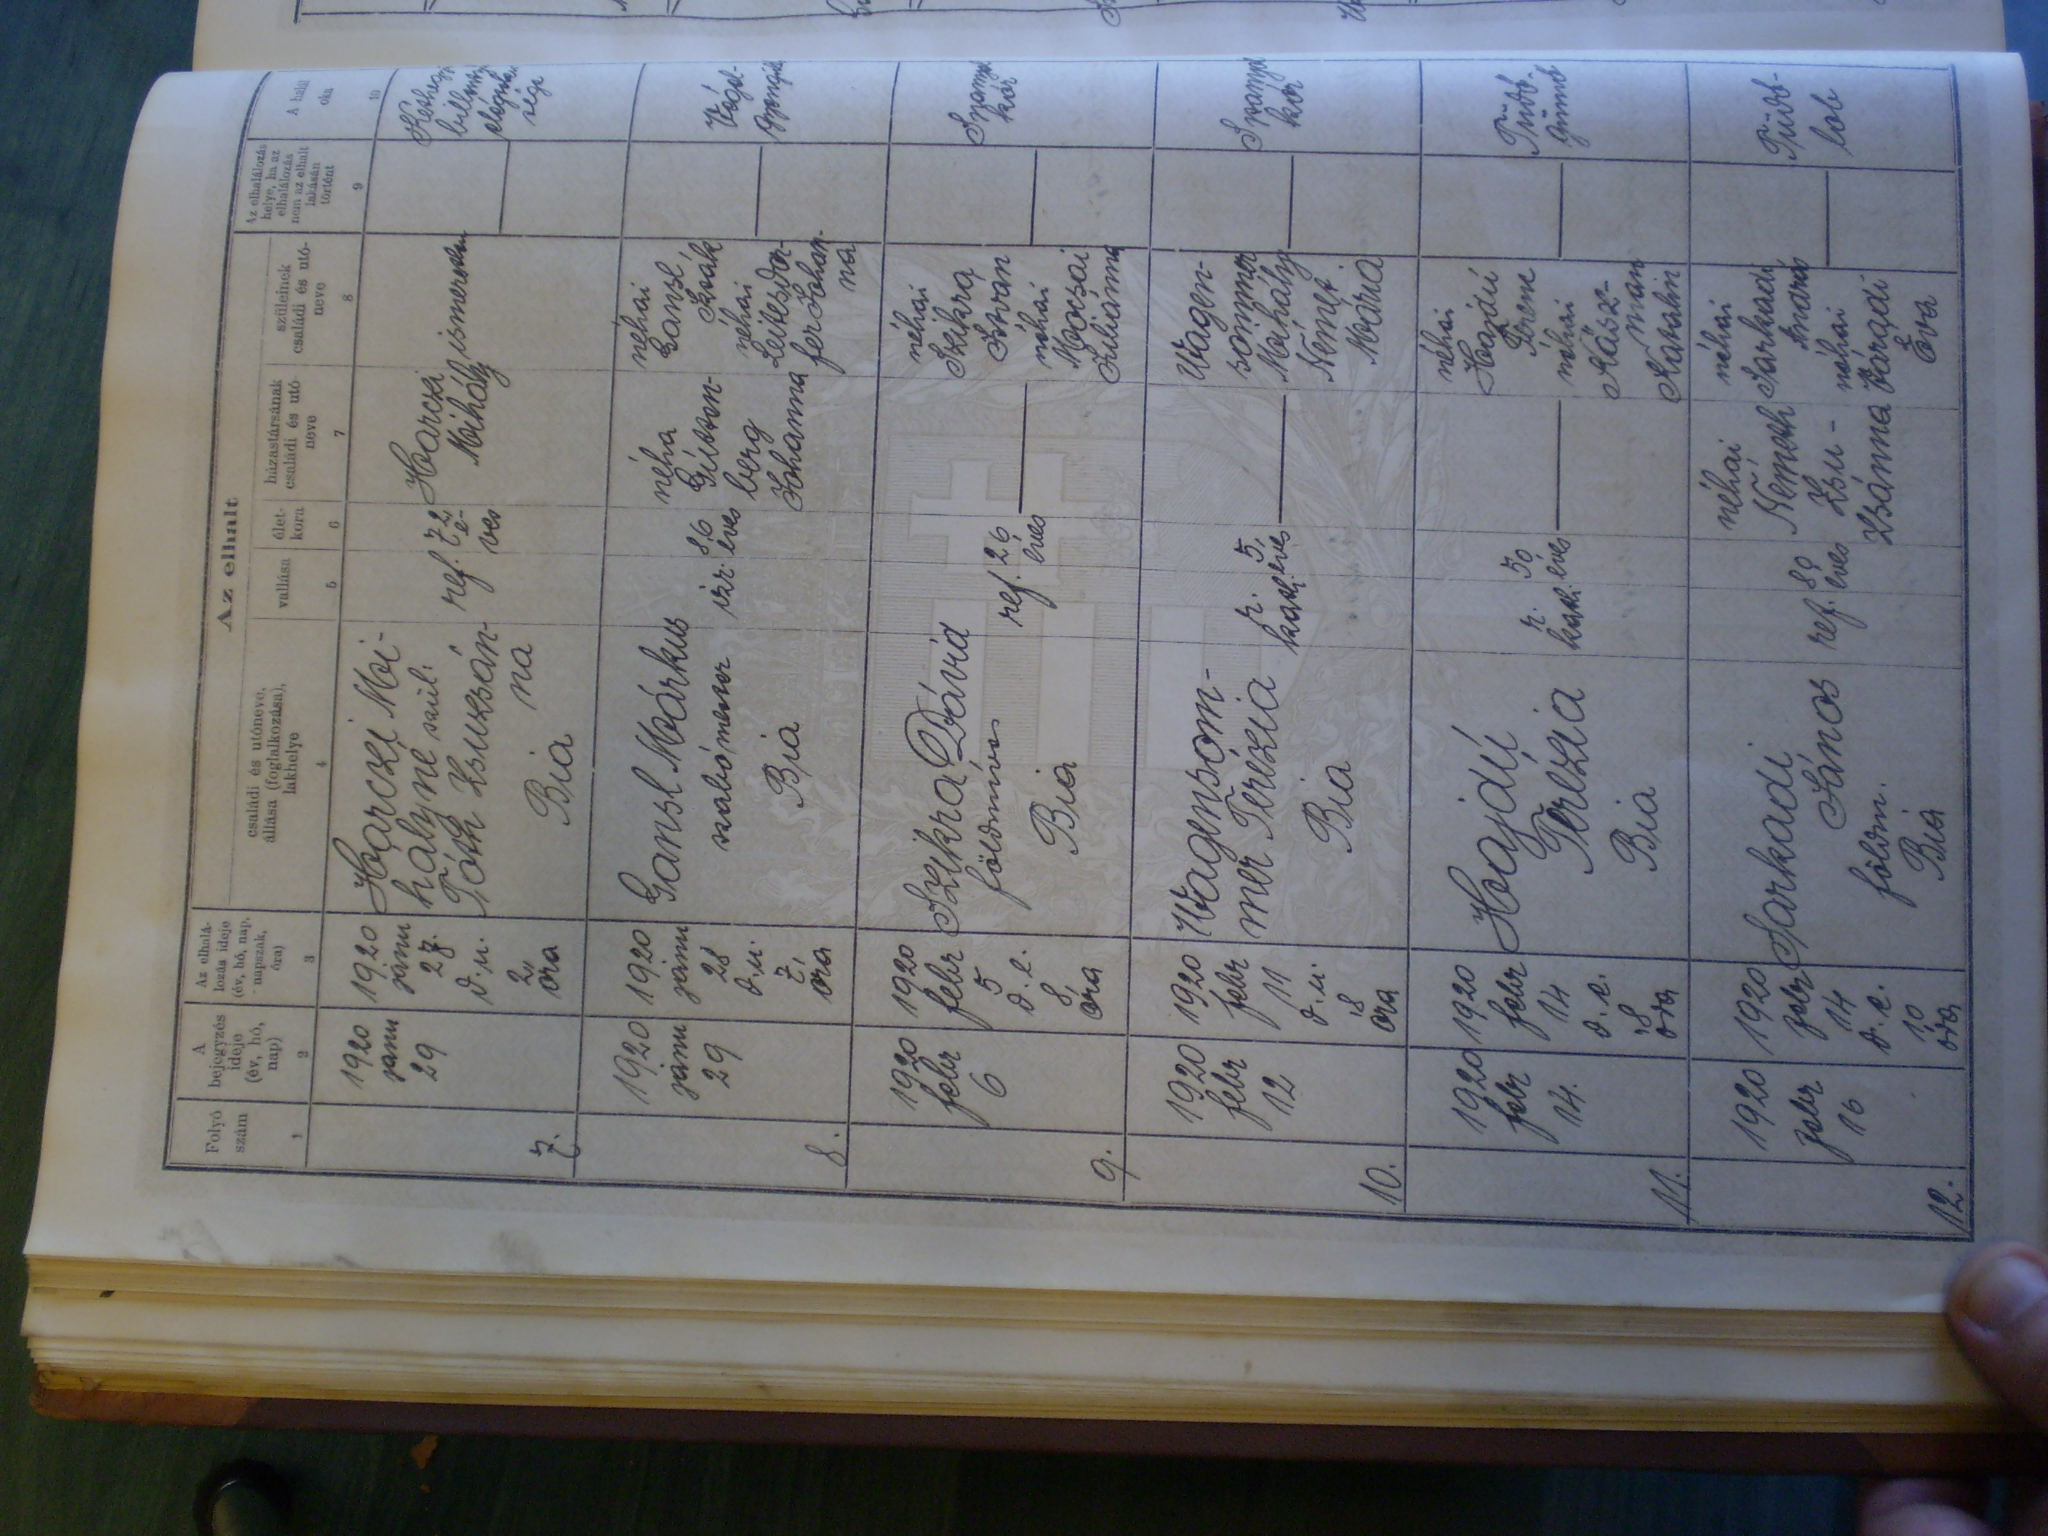 Az elhalt
Folyó
szám
A
bejegyzés
ideje
(év, hó,
nap)
Az elhalá-
lozás ideje
(év, hó, nap,
napszak,
óra)
családi és utóneve,
állása (foglalkozása),
lakhelye
vallása
élet-
kora
házastársának
családi és utó-
neve
szüleinek
családi és utó-
neve
Az elhalálozás
helye, ha az
elhalálozás
nem az elhalt
lakásán
történt
A halál
oka
1
2
3
4
5
6
7
8
9
10
7.
1920
janu
29
1920
janu
27.
d. u.
2
óra
Harczi Mi-
hályné szül.
Tóth Zsuzsán-
na
Bia
ref.
72
é-
ves
Harczi
Mihály
ismeretlen
8.
1920
janu
29
1920
janu
28
d. u.
7
óra
Gansl Márkus
szabómester
Bia
izr.
86
éves
néha
berg
Johanna
néhai
Gansl
Izsák
néhai
Leitesdor-
fer Johan-
na
Végel-
gyengül
9.
1920
febr
6
1920
febr
5
d. e.
8
óra
Szikra Dávid
földmíves
Bia
ref.
26
éves
néhai
Szikra
István
néhai
Mocsai
Juliánna
Spanyol
kór
10.
1920
febr
12
1920
febr
11
d. u.
8
óra
Wagensom-
mer Terézia
Bia
r.
kath.
5
éves
Wagen-
sommer
Mihály
Német
Mária
Spanyol
kór
11.
1920
febr
14.
1920
febr
14
d. e.
8
óra
Hajdú
Terézia
Bia
r.
kath.
50
éves
néhai
Hajdú
Ferenc
néhai
man
Katalin
Tüdő-
gümő
12.
1920
febr
16
1920
febr
14
d. e.
10
óra
Sarkadi
János
földm.
Bia
ref.
89
éves
néhai
Németh
Zsu-
zsánna
néhai
Sarkadi
András
néhai
Váradi
Éva
Tüdő-
lob